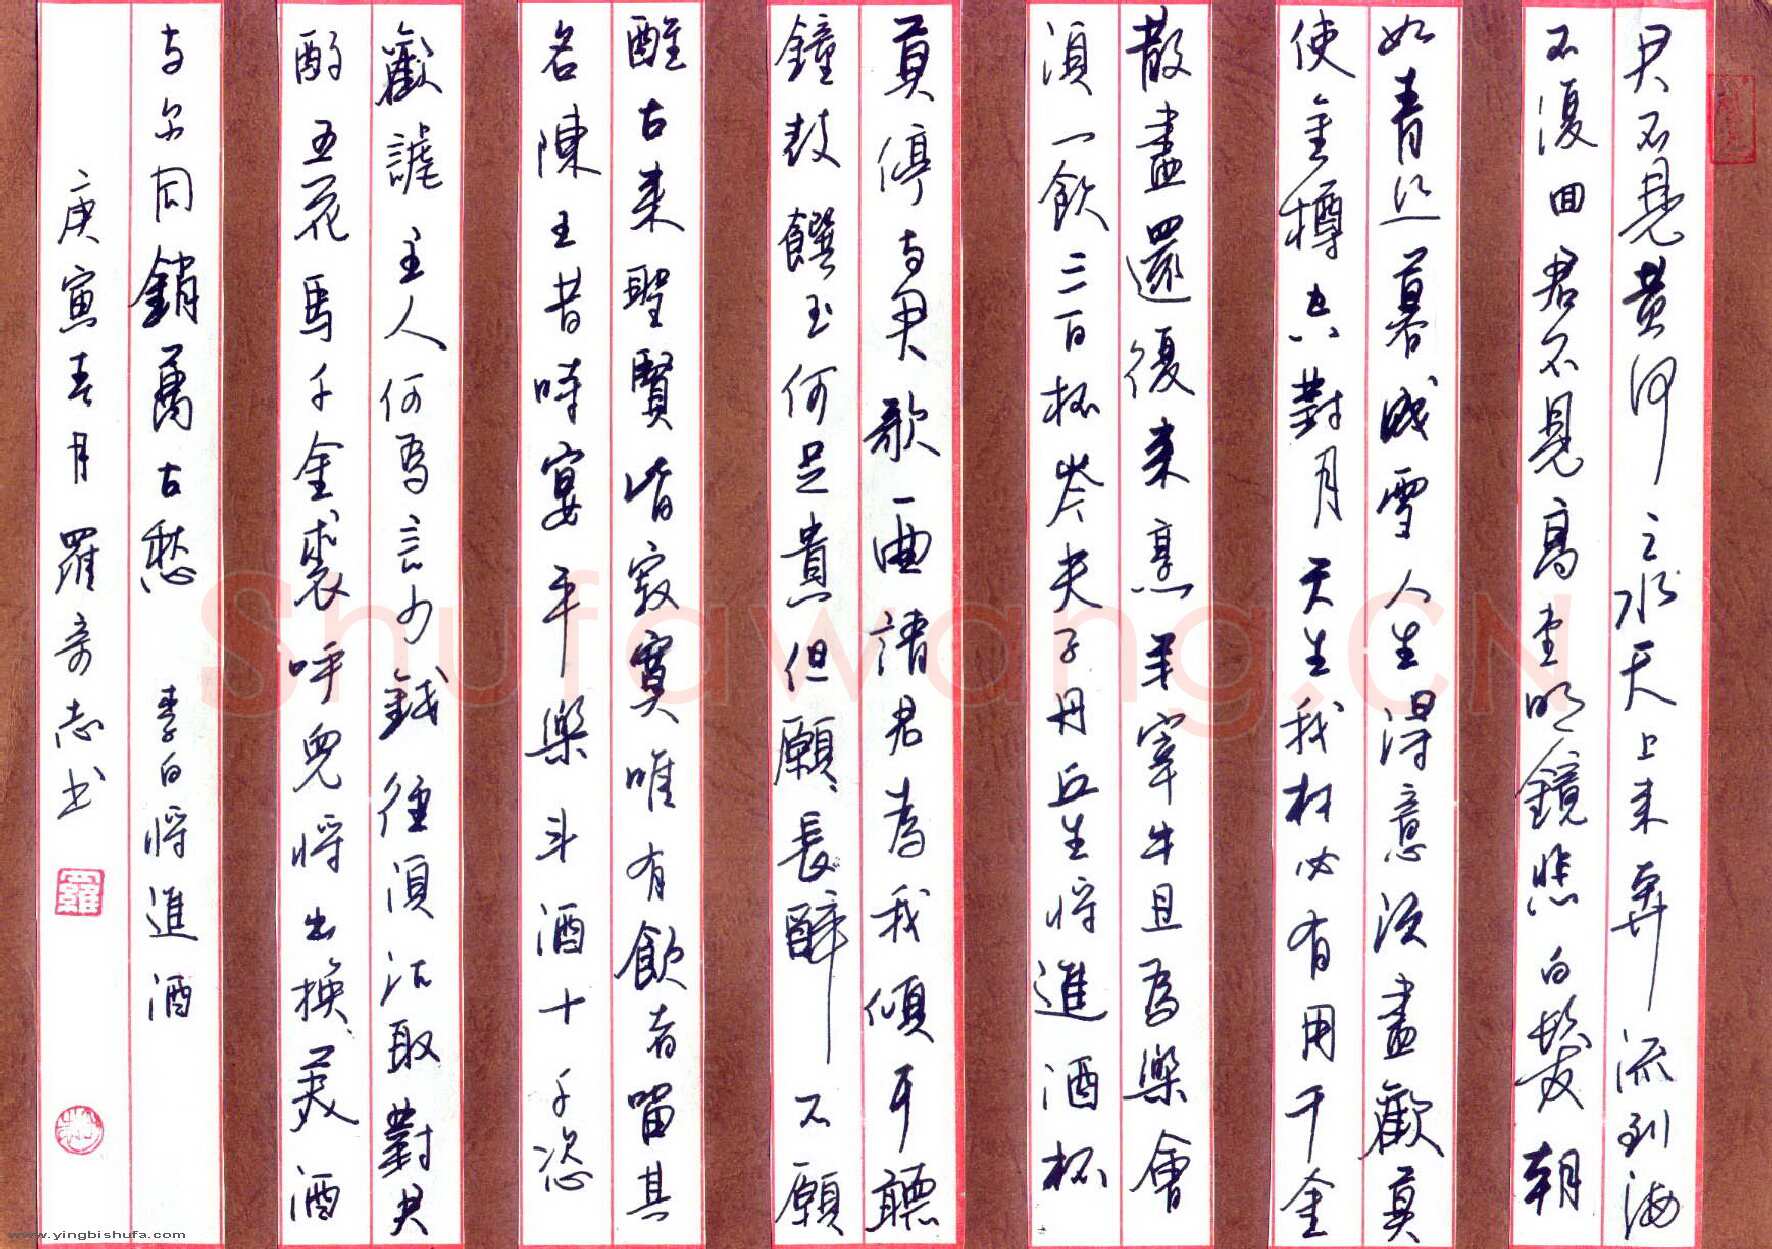 君不見黄河之水天上来奔流到海
不復回君不見高堂明鏡悲白髮朝
如青丝暮成雪人生得意须盡歡莫
使金樽空對月天生我材必有用千金
散盡還復来烹羊宰牛且為樂會
須一飲三百杯岑夫子丹丘生将進酒杯
莫停与君歌一曲請君為我傾耳聽
鐘鼓饌玉何足貴但願長醉不願
醒古来聖賢皆寂寞唯有飲者留其
名陳王昔時宴平樂斗酒十千恣
歡謔主人何為言少錢徑須沽取對君
酌五花馬千金裘呼兒将出換美酒
与尔同銷萬古愁 李白将進酒
庚寅春月羅奇志书
羅
Shufawang.CN
www.yingbishufa.com